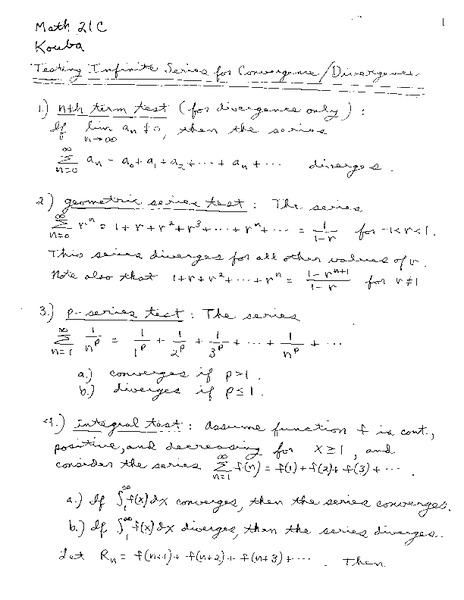 1
Math 21C
Kouba
Testing Infinite Series for Convergence/Divergence
1.) nth term test (for divergence only) :
If lim n→∞ an ≠ 0, then the series
∞ Σ n=0 an = a0 + a1 + a2 + ··· + an + ··· diverges.
2.) geometric series test : The series
∞ Σ n=0 r^n = 1 + r + r^2 + r^3 + ··· + r^n + ··· = 1/(1-r) for -1<r<1.
This series diverges for all other values of r.
Note also that 1+r+r^2+···+r^n = (1-r^(n+1))/(1-r) for r≠1
3.) p-series test : The series
∞ Σ n=1 1/n^p = 1/1^p + 1/2^p + 1/3^p + ··· + 1/n^p + ···
a.) converges if p>1.
b.) diverges if p≤1.
4.) integral test : Assume function f is cont.,
positive, and decreasing for x≥1, and
consider the series ∞ Σ n=1 f(n) = f(1) + f(2) + f(3) + ···
a.) If ∫1^∞ f(x) dx converges, then the series converges.
b.) If ∫1^∞ f(x) dx diverges, then the series diverges.
Let Rn = f(n+1) + f(n+2) + f(n+3) + ··· . Then